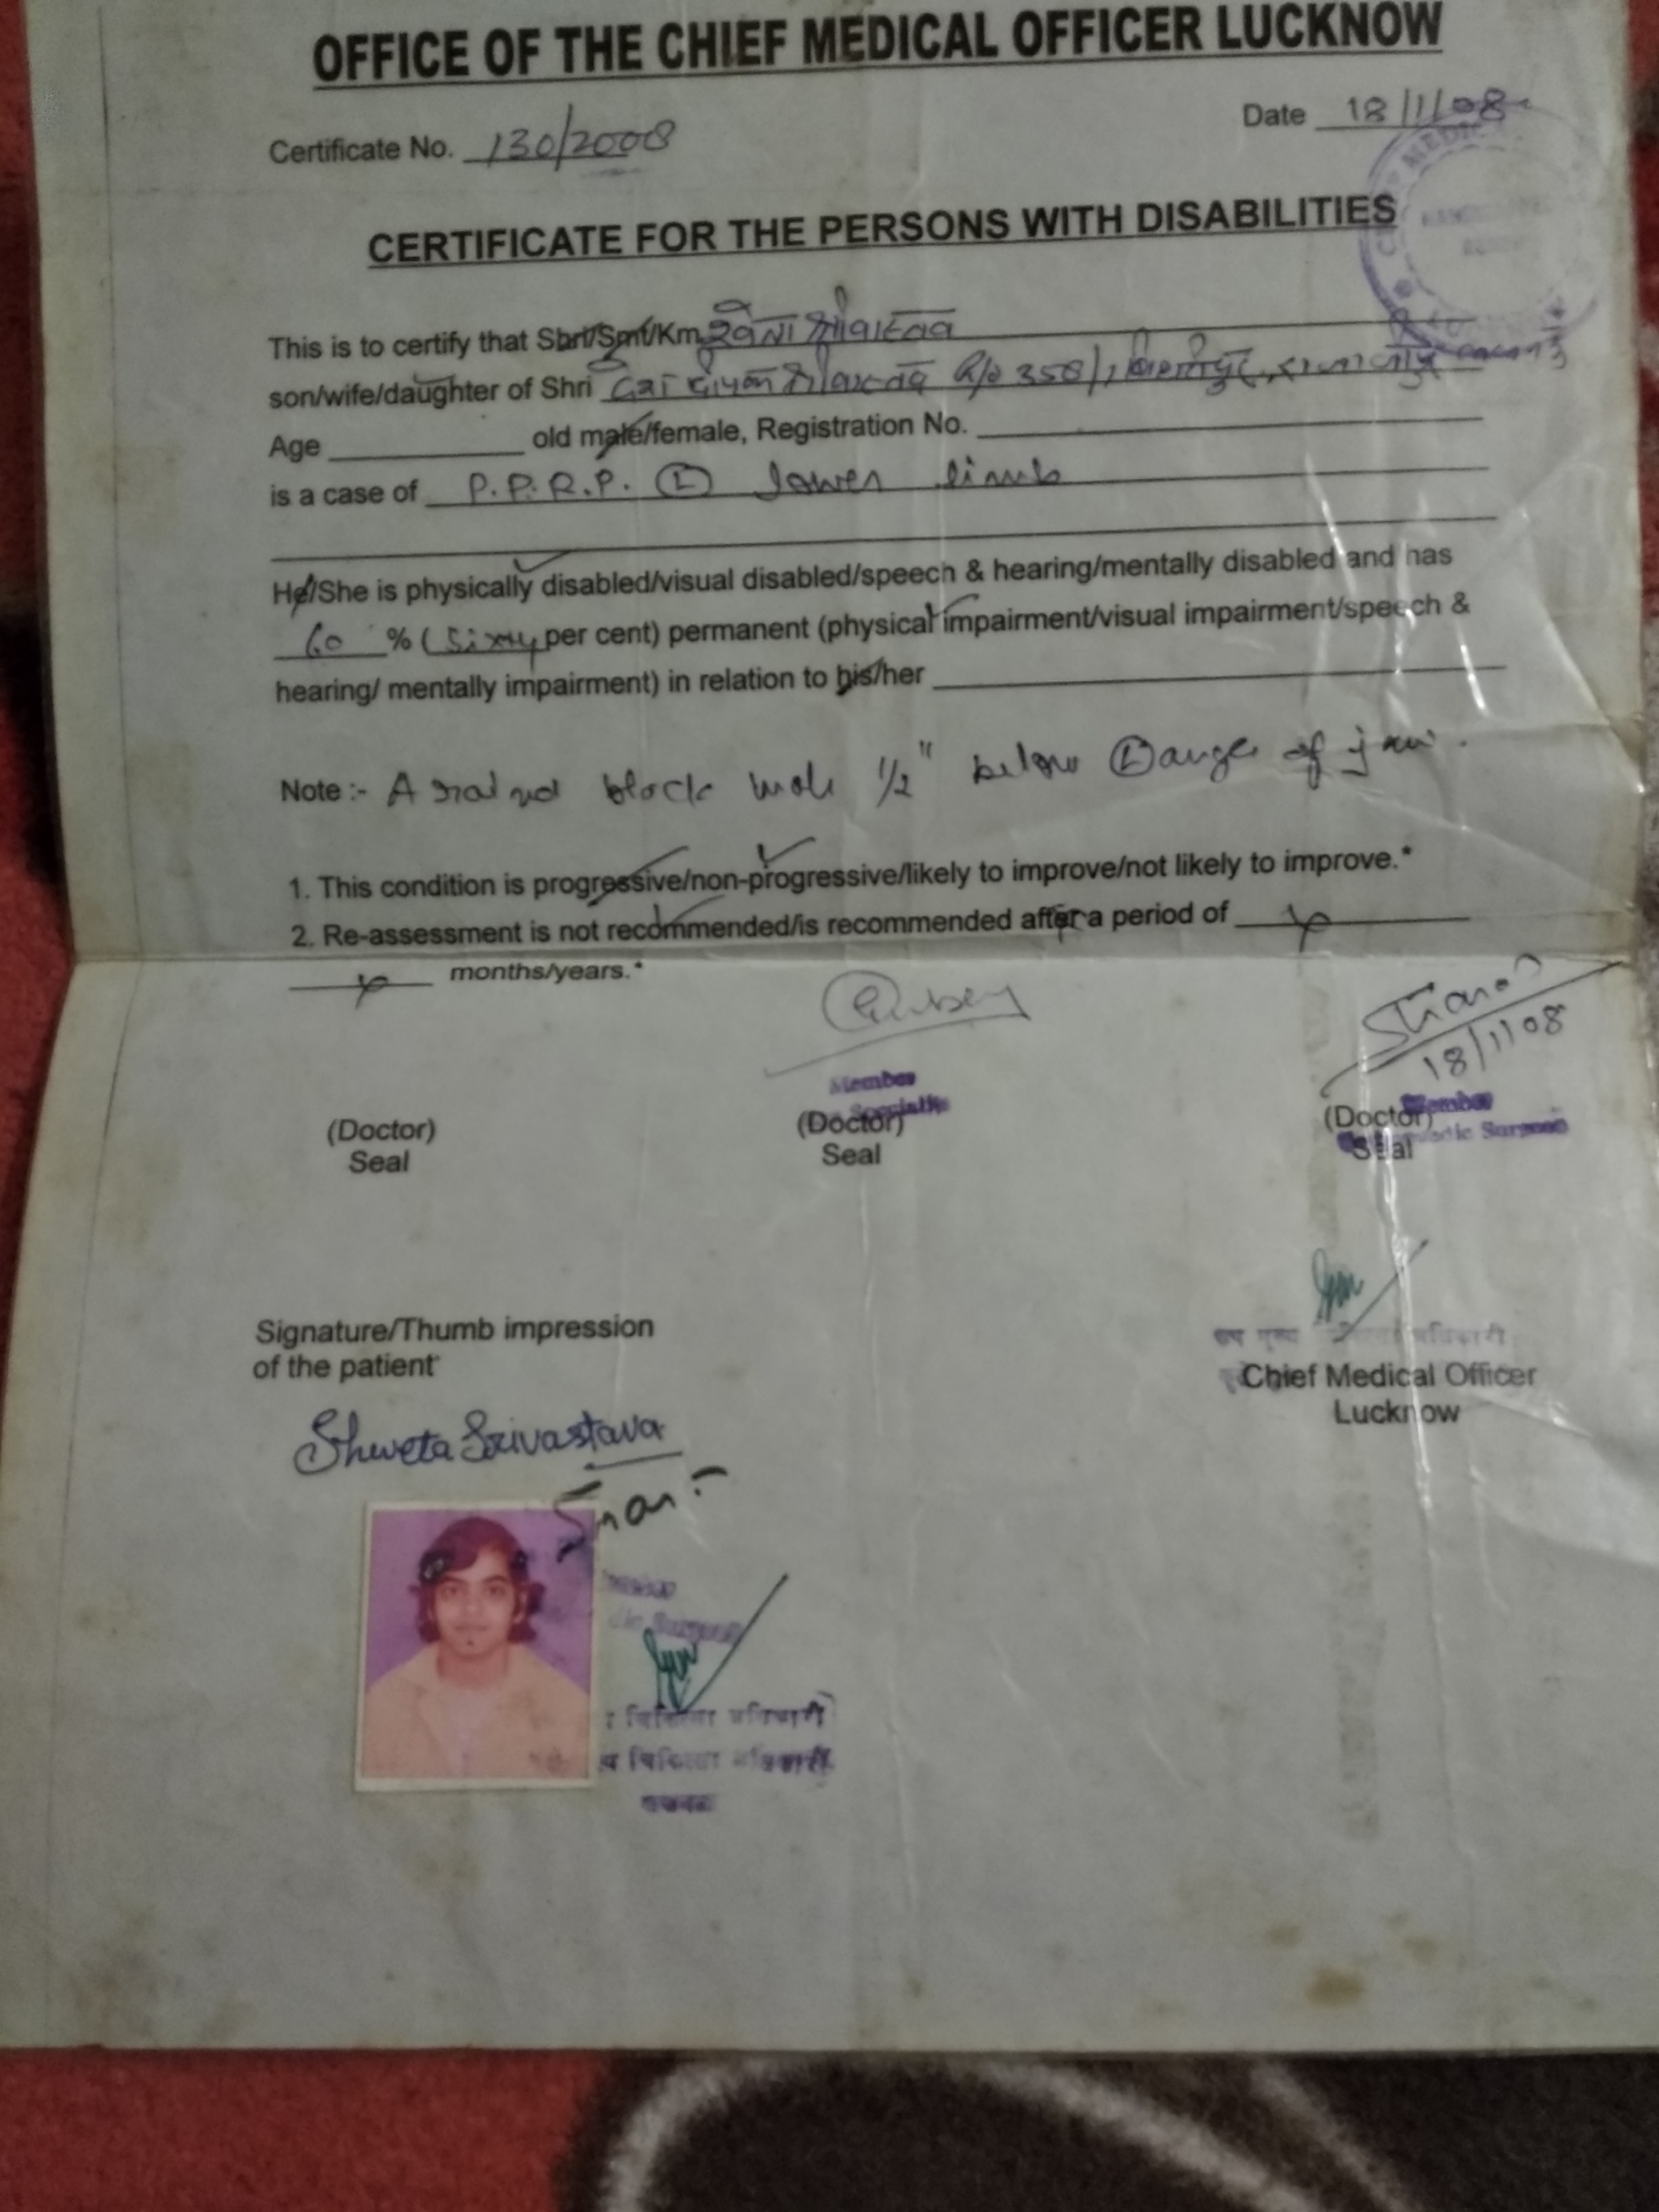 OFFICE OF THE CHIEF MEDICAL OFFICER LUCKNOW
Date 18/1/08
Certificate No. 130/2008
CERTIFICATE FOR THE PERSONS WITH DISABILITIES
This is to certify that Shri/Smt/Km. श्वेता श्रीवास्तव
son/wife/daughter of Shri श्रीवास्तव R/o 358/1
Age old male/female, Registration No.
is a case of P.P.R.P. (L) lower limb
He/She is physically disabled/visual disabled/speech & hearing/mentally disabled and has
60 % (Sixty per cent) permanent (physical impairment/visual impairment/speech &
hearing/ mentally impairment) in relation to his/her
Note :- A black mole 1/2" below (L) angle of jaw.
1. This condition is progressive/non-progressive/likely to improve/not likely to improve.*
2. Re-assessment is not recommended/is recommended after a period of
months/years.*
18/1/08
Member
Member
(Doctor)
(Doctor)
(Doctor)
Surgeon
Seal
Seal
Seal
Signature/Thumb impression
of the patient
Chief Medical Officer
Lucknow
Shweta Srivastava
Surgeon
चिकित्सा अधिकारी
चिकित्सा अधिकारी
लखनऊ